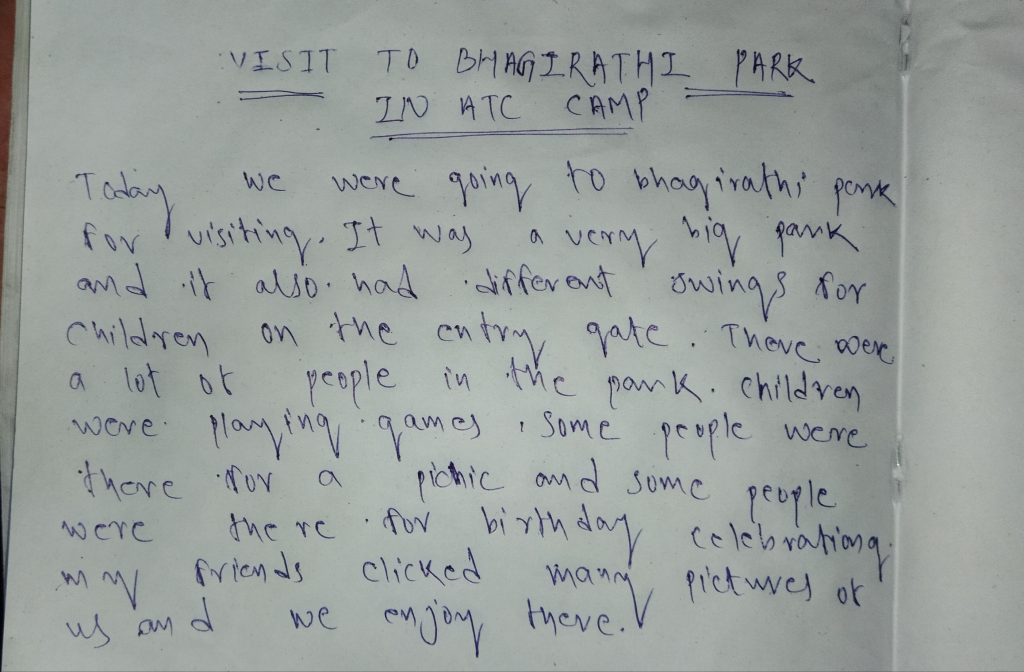 VISIT TO BHAGIRATHI PARK
IN ATC CAMP
Today we were going to bhagirathi park
for visiting. It was a very big park
and it also had different swings for
children on the entry gate. There were
a lot of people in the park. children
were playing games, some people were
there for a picnic and some people
were there for birthday celebrationg.
my friends clicked many pictures of
us and we enjoy there.